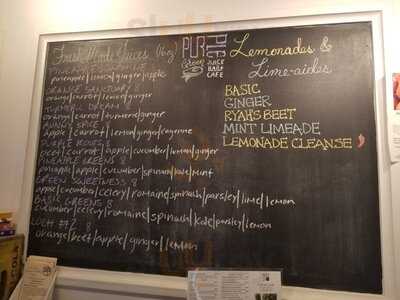 Fresh Made Juices (16oz)
pineapple/lemon/ginger/apple
ORANGE SANCTUARY 8
orange/carrot/lemon/ginger
TURMERIC DREAM
orange/carrot/turmeric/ginger
SPICE
apple/carrot/lemon/ginger/cayenne
PURPLE ROOTS 8
beet/carrot/apple/cucumber/lemon/ginger
PINEAPPLE GREENS 8
pineapple/apple/cucumber/spinach/kale/mint
GREEN SWEETNESS 8
apple/cucumber/celery/romaine/spinach/parsley/lime/lemon
BASIC GREENS 8
cucumber/celery/romaine/spinach/kale/parsley/lemon
#2 8
orange/beet/apple/ginger/lemon
PURE
PIECE
JUICE
BAR &
CAFE
Lemonades &
Lime-aides
BASIC
GINGER
RYAH'S BEET
MINT LIMEADE
LEMONADE CLEANSE